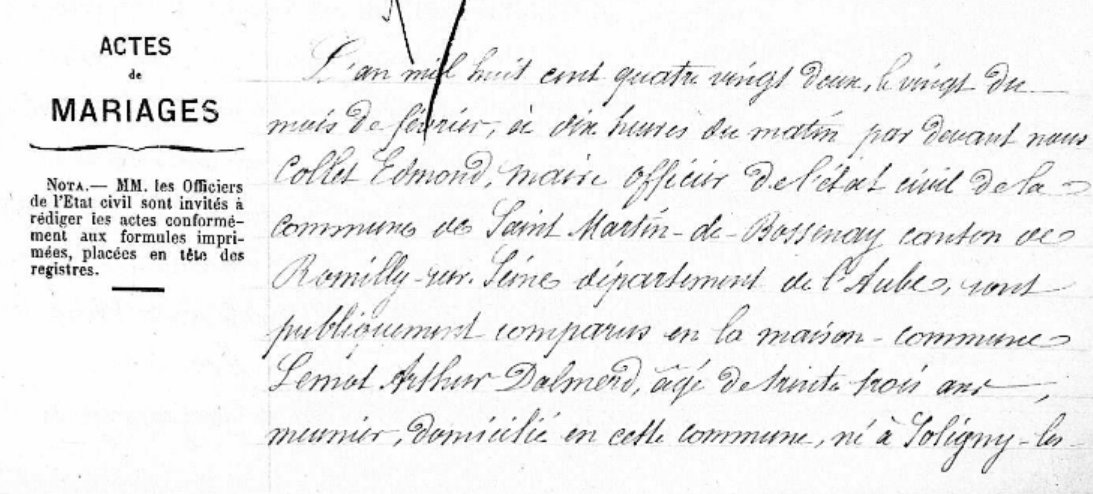 ACTES
de
MARIAGES
NOTA.— MM. les Officiers
de l'Etat civil sont invités à
rédiger les actes conformé-
ment aux formules impri-
mées, placées en tête des
registres.
L'an mil huit cent quatre vingt deux, le vingt du
mois de février, à dix heures du matin par devant nous
Collet Edmond, maire officier de l'état civil de la
commune de Saint Martin-de-Bossenay canton de
Romilly-sur-Seine département de l'Aube, sont
publiquement comparus en la maison-commune
Arthur Dalmerd, âgé de trente trois ans,
meunier, domicilié en cette commune, né à Soligny-les-